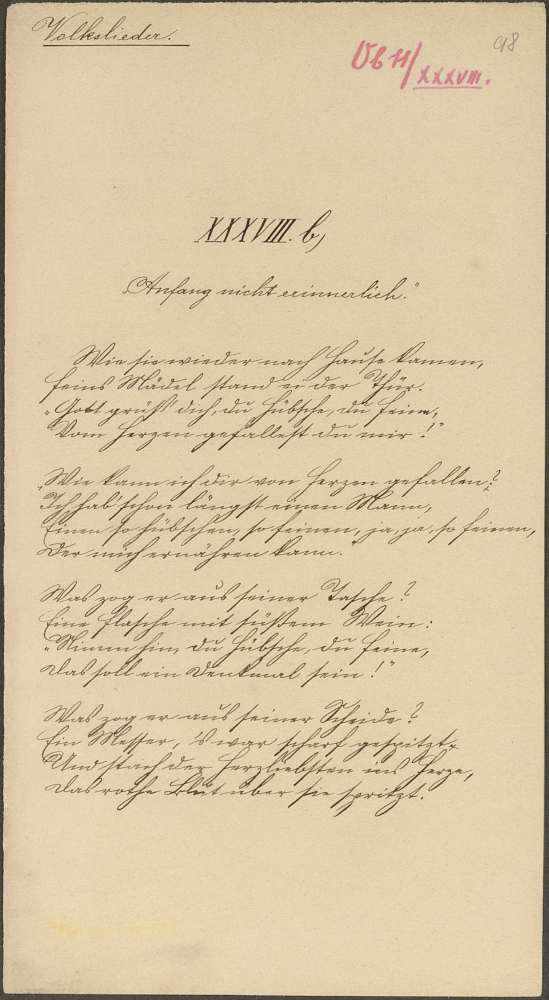 Volkslieder.
Ob H/XXXVIII.
98
XXXVIII. b,
Anfang nicht erinnerlich."
Wie sie wieder nach Hause kamen,
Feins Mädel stand in der Thür.
"Gott grüß dich, du Hübsche, du Feine,
Vom Herzen gefallest du mir!"
"Wie kann ich dir von Herzen gefallen?
Ich hab' schon längst einen Mann,
Einen so hübschen, so feinen, ja, ja, so feinen,
Der mich ernähren kann."
Was zog er aus seiner Tasche?
Eine Flasche mit süßem Wein:
"Nimm hin, du Hübsche, du Feine,
Das soll ein Denkmal sein!"
Was zog er aus seiner Scheide?
Ein Messer, 's war scharf gespitzt.
Und stach der Herzliebsten ins Herze,
Das rothe Blut über sie spritzt.